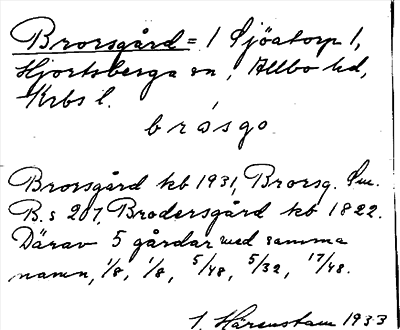 Brorsgård = 1 Sjöatorp 1,
Hjortsberga sn, Allbo hd,
Krbs l.
brósgo
Brorsgård kb 1931, Brorsg. Sm.
B. s 207, Brodersgård kb 1822.
Därav 5 gårdar med samma
namn, 1/8, 1/8, 5/48, 5/32, 17/48.
Härenstam 1933